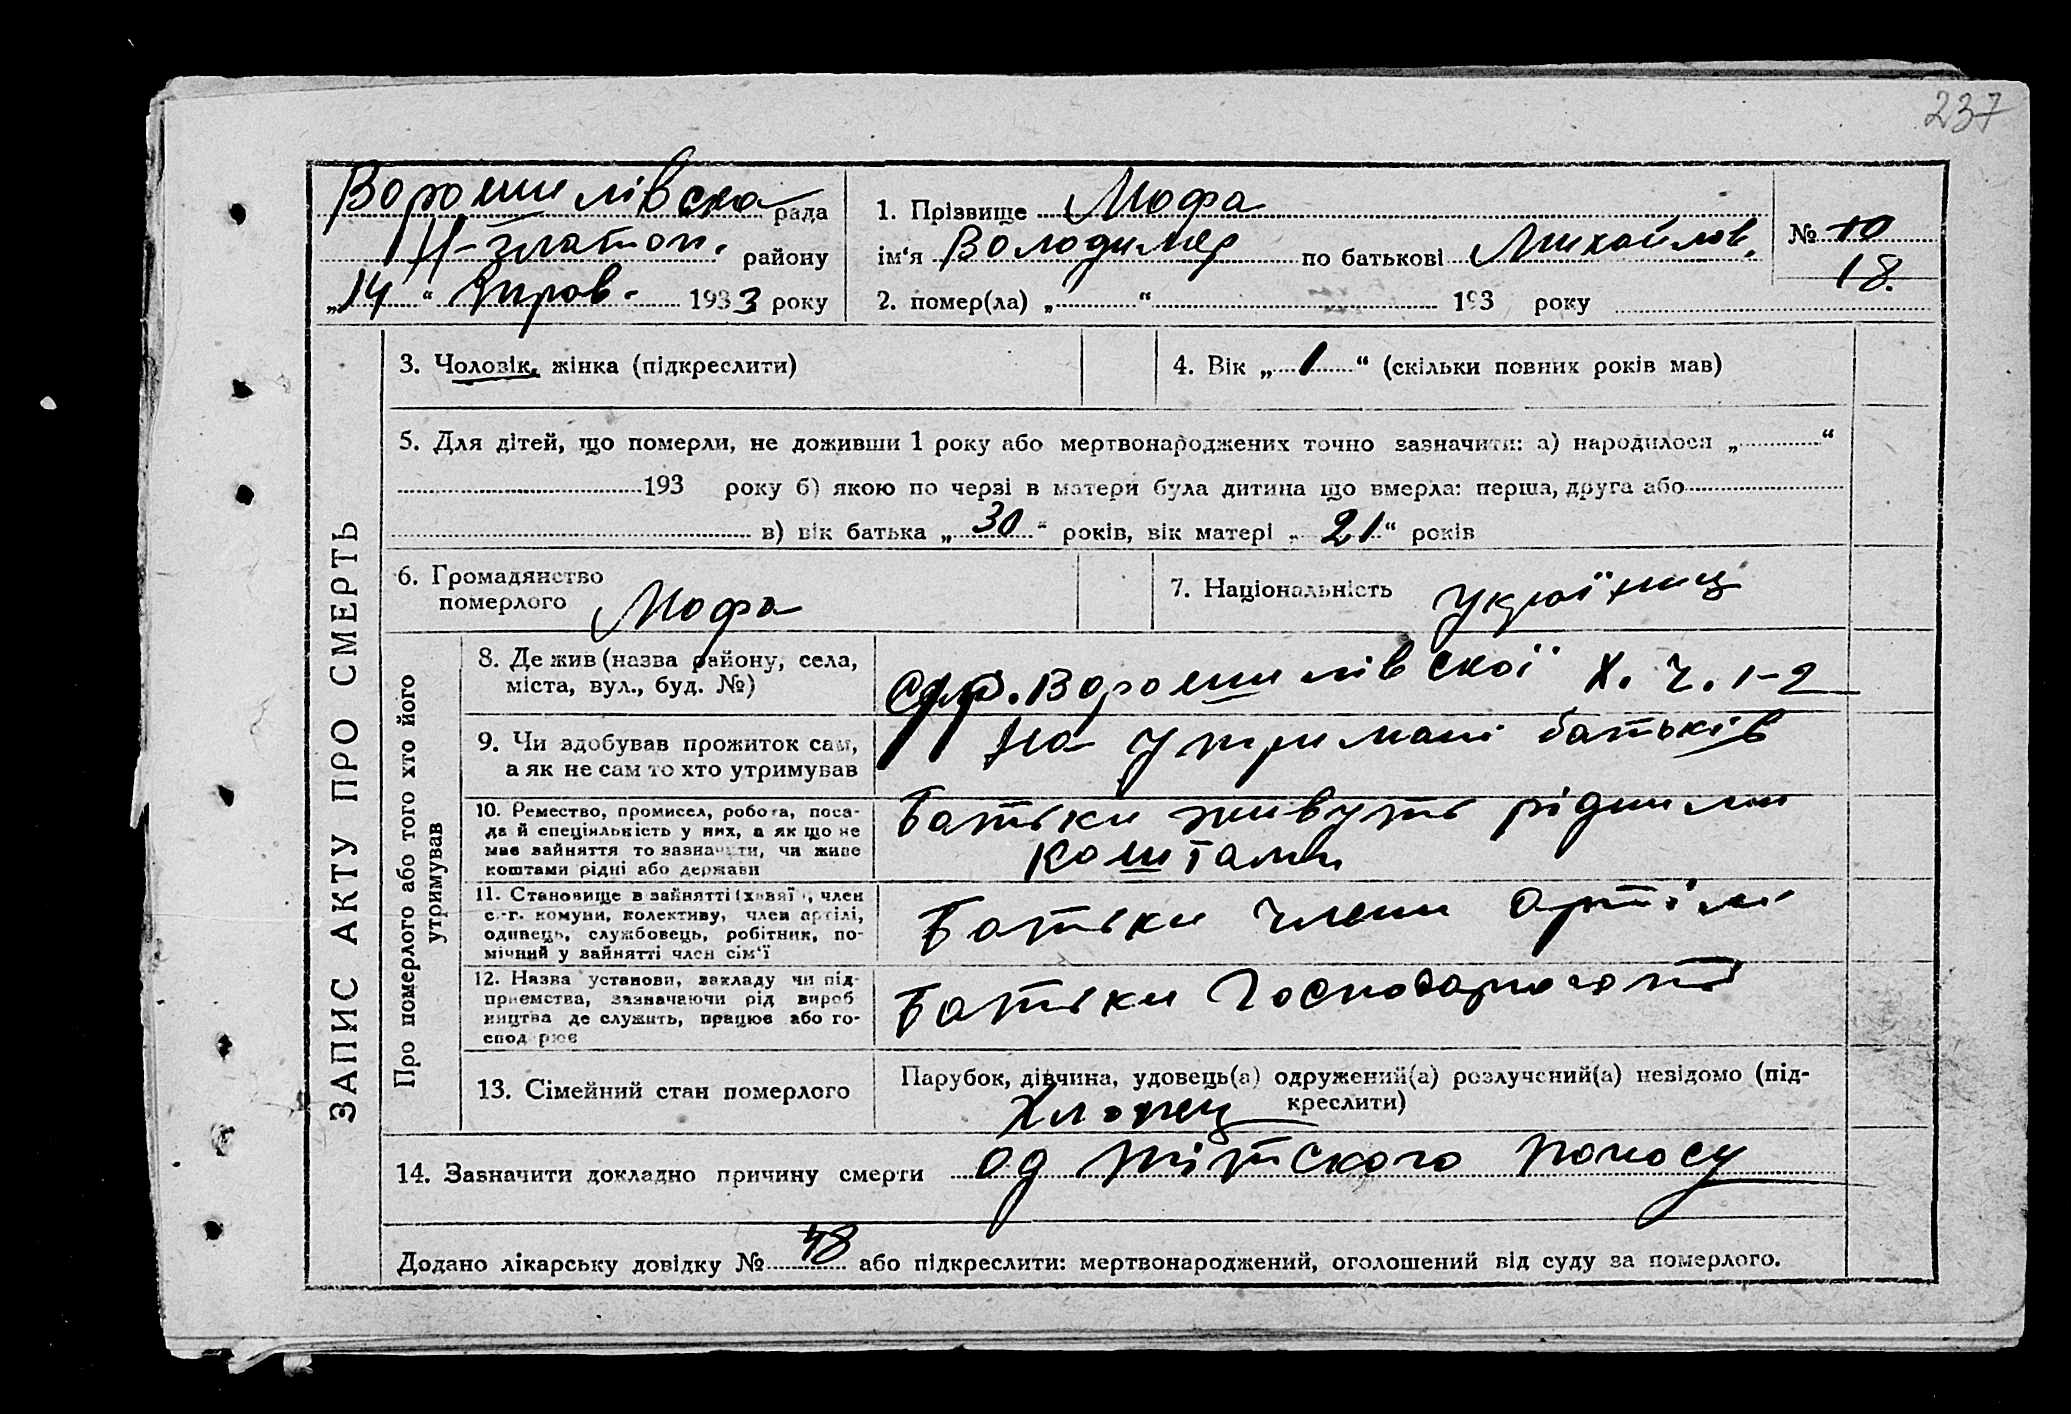 237
Ворошилівска рада
Н-златоп. району
„14“ 193 3 року
1. Прізвище Мофа
ім‘я Володимер по батькові Михайлов.
№ 10
18.
2. помер(ла) „ “ 193 року
ЗАПИС АКТУ ПРО СМЕРТЬ
3. Чоловік, жінка (підкреслити)
4. Вік „ 1 “ (скільки повних років мав)
5. Для дітей, що померли, не доживши 1 року або мертвонароджених точно зазначити: а) народилося „ “
193 року б) якою по черзі в матери була дитина що вмерла: перша, друга або
в) вік батька „ 30 “ років, вік матері „ 21 “ років
6. Громадянство
померлого Мофа
7. Національність україниц
Про померлого або того хто його
утримував
8. Де жив (назва району, села,
міста, вул., буд. №)
Ворошилівскої Х. Ч. 1-2
9. Чи здобував прожиток сам,
а як не сам то хто утримував
на утримані батьків
10. Ремество, промисел, робота, поса-
да й спеціяльність у них, а як що не
має зайняття то зазначити, чи живе
коштами рідні або держави
Батьки живуть рідними
коштами
11. Становище в зайнятті (хазяї , член
с.-г. комуни, колективу, член артілі,
одинець, службовець, робітник, по-
мічний у зайнятті член сім‘ї
Батьки члени артілі
12. Назва установи, закладу чи під-
приємства, зазначаючи рід вироб
ництва де служить, працює або го-
спод рює
Батьки
13. Сімейний стан померлого
Парубок, дівчина, удовець(а) одружений(а) розлучений(а) невідомо (під-
креслити)
Хлопец
14. Зазначити докладно причину смерти од поносу
Додано лікарську довідку № 48 або підкреслити: мертвонароджений, оголошений від суду за померлого.